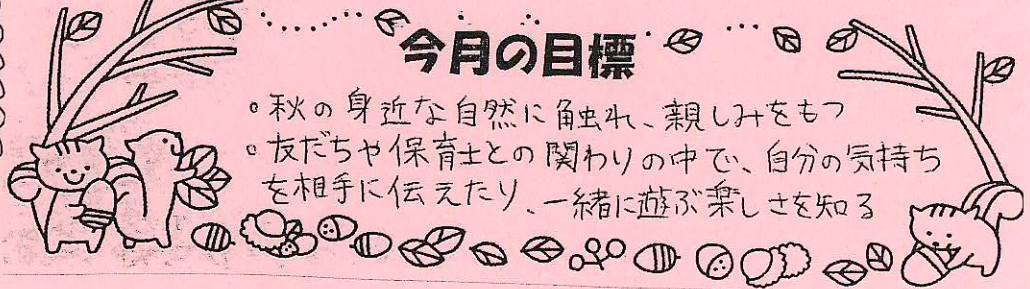 今月の目標
。秋の身近な自然に触れ、親しみをもつ
。友だちや保育士との関わりの中で、自分の気持ち
を相手に伝えたり、一緒に遊ぶ楽しさを知る